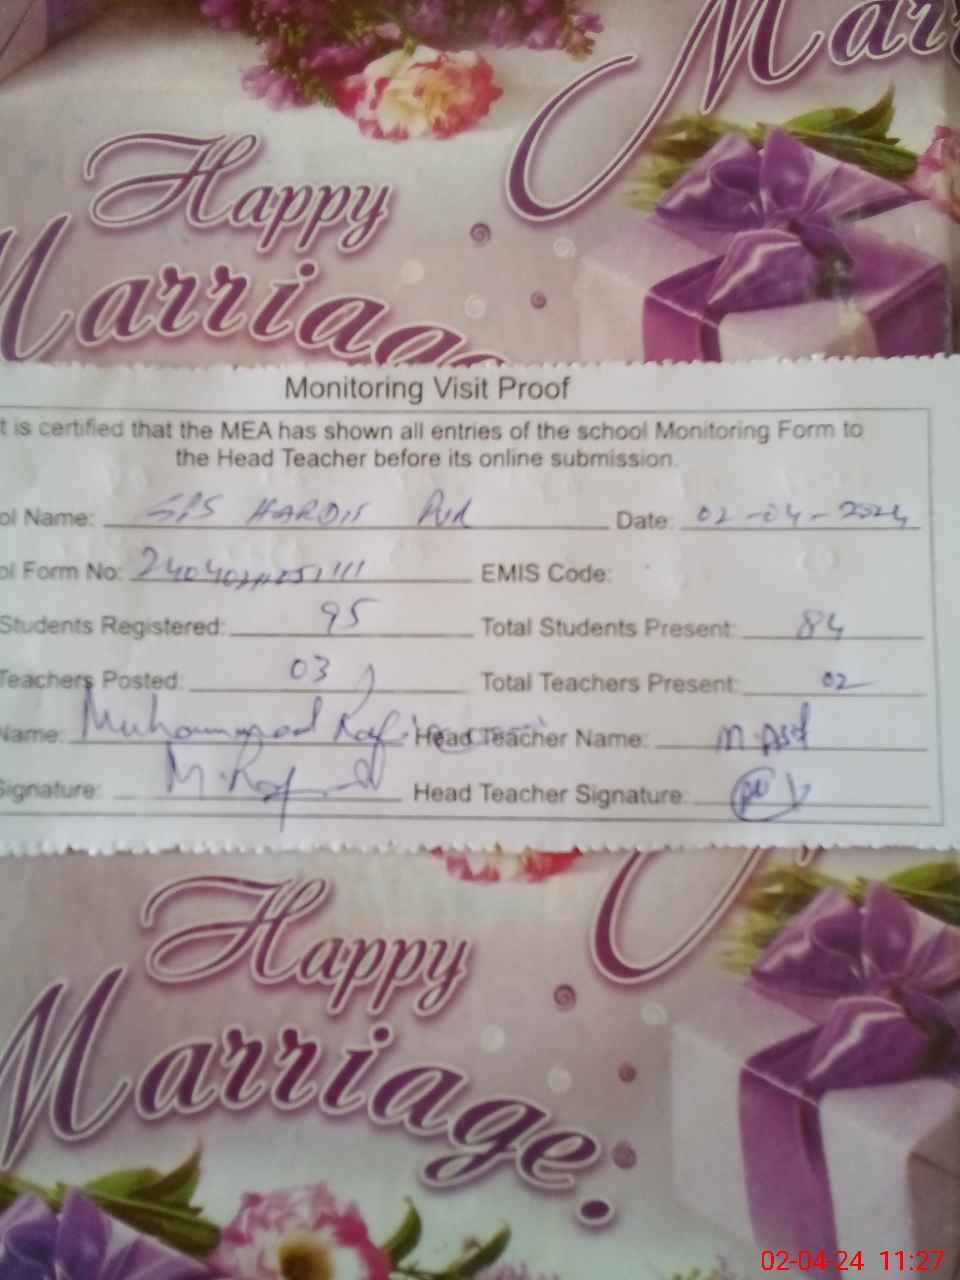 Mar
Happy
Marriage
Monitoring Visit Proof
t is certified that the MEA has shown all entries of the school Monitoring Form to
the Head Teacher before its online submission.
ol Name: GPS Date: 02-04-2024
ol Form No: EMIS Code:
Students Registered: 95 Total Students Present: 84
Teachers Posted: 03 Total Teachers Present: 02
Name: Muhammad Head Teacher Name:
Signature: Head Teacher Signature:
Happy
Marriage.
02-04-24 11:27